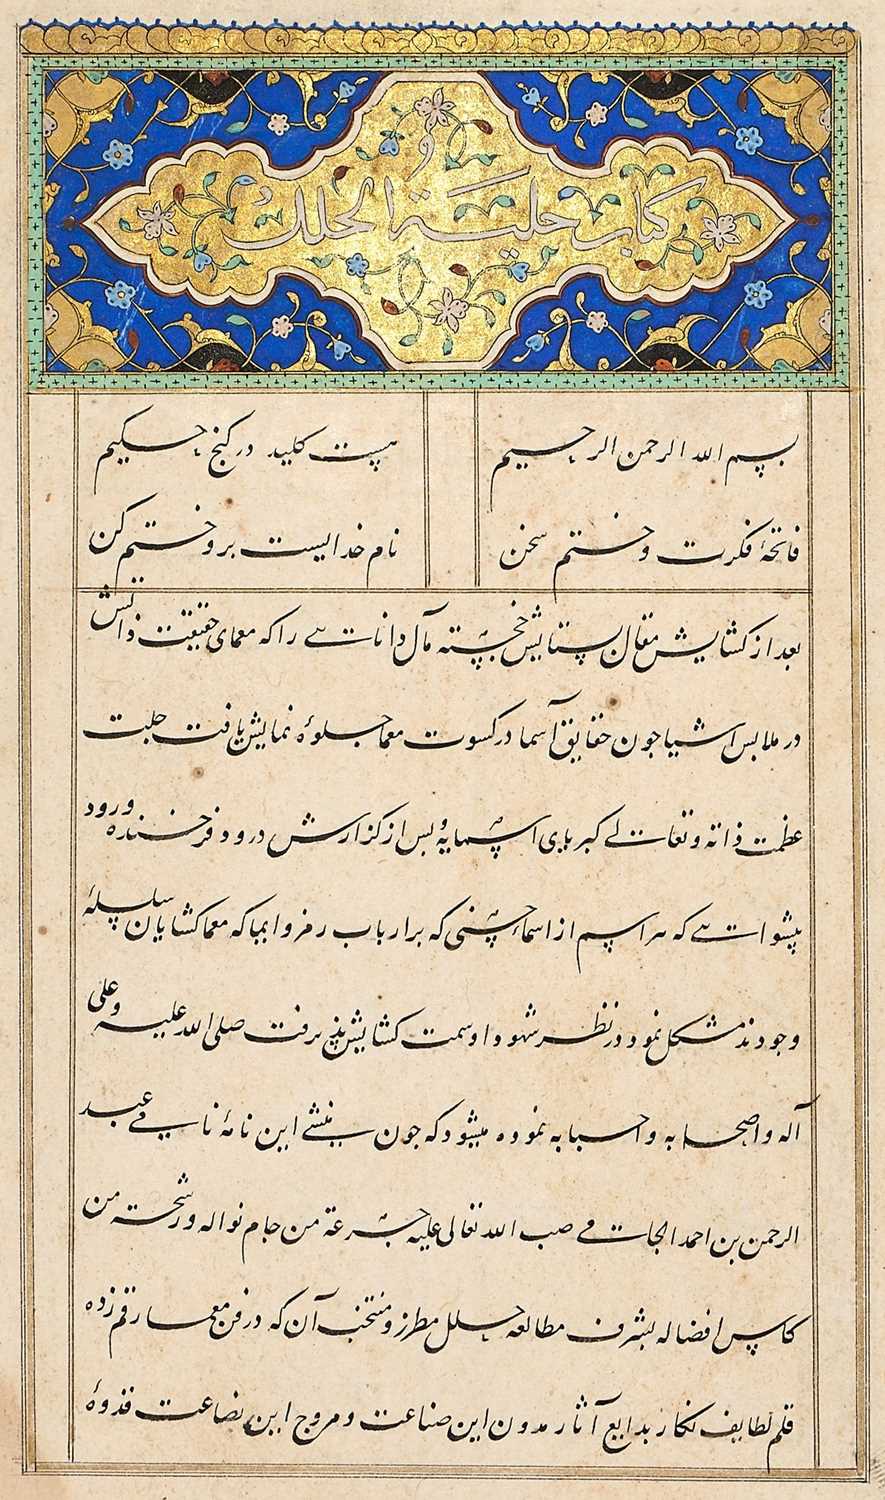 کتاب حلیة الحلل
بسم الله الرحمن الرحیم هست کلید در گنج حکیم
فاتحهٔ فکرت و ختم سخن نام خدایست برو ختم کن
بعد از کشایش مقال بستایش خجسته مآل دانائی را که معمای حقیقت ذاتش
در ملابس اشیا جون حقایق آسما در کسوت معما جلوهٔ نمایش یافت جلت
عظمت ذاته و تعالی کبریای اسمایه و بس از کزارش درود فرخنده ورود
پیشوائی که هر اسم از اسماء حسنی که بر ارباب رمز و ایما که معما کشایان سلسلهٔ
وجودند مشکل نمود در نظر شهود او سمت کشایش پذیرفت صلی الله علیه و علی
آله و اصحابه و احبابه نموده میشود که جون منشی این نامهٔ نامی عبد
الرحمن بن احمد الجامی صب الله تعالی علیه جرعة من جام نواله و رشحة من
کاس افضاله بشرف مطالعه حلل مطرز و منتخب آن که در فن معما رقم زده
قلم لطایف نکار بدایع آثار مدون این صناعت و مروج این بضاعت قدوهٔ